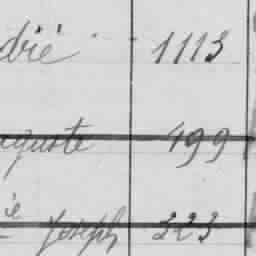 drié 1113
uguste 499
ie Joseph 323